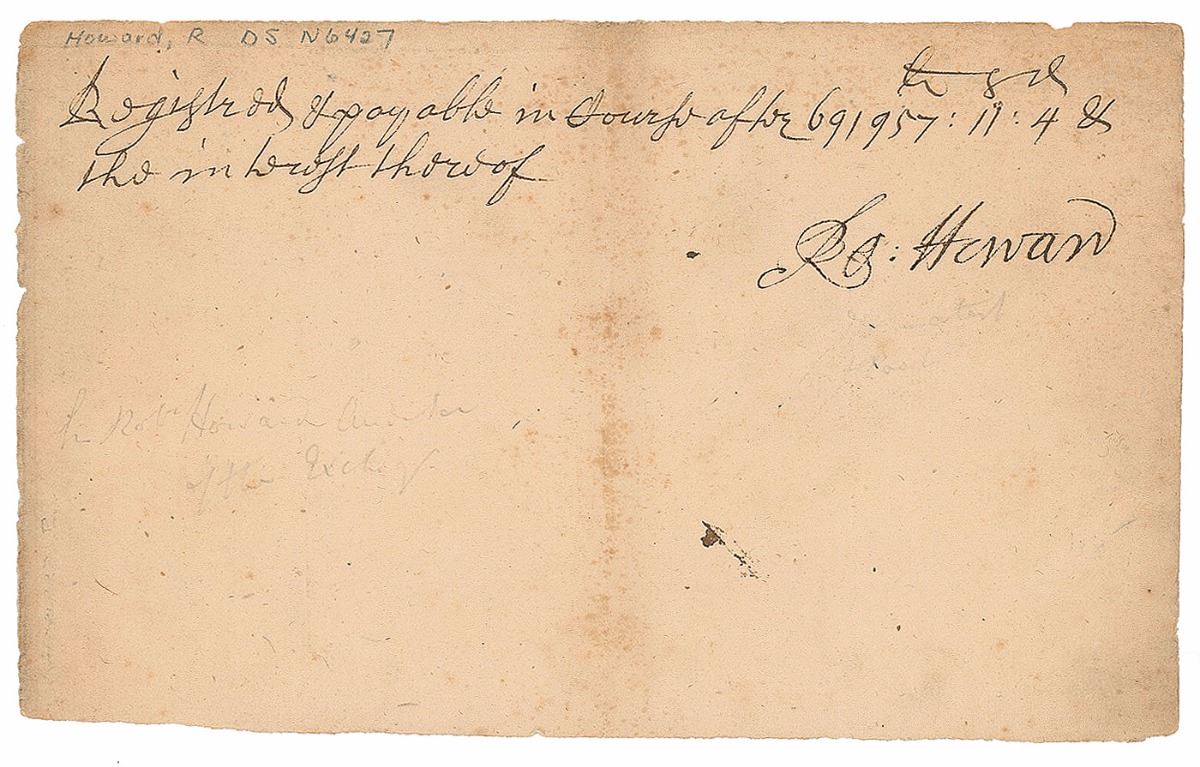 Howard, R DS N6427
li s d
Registred & payable in Course after 691957: 11: 4 &
the interest thereof
Ro: Howard
Sr Robt Howard Auditor
of the Excheqr